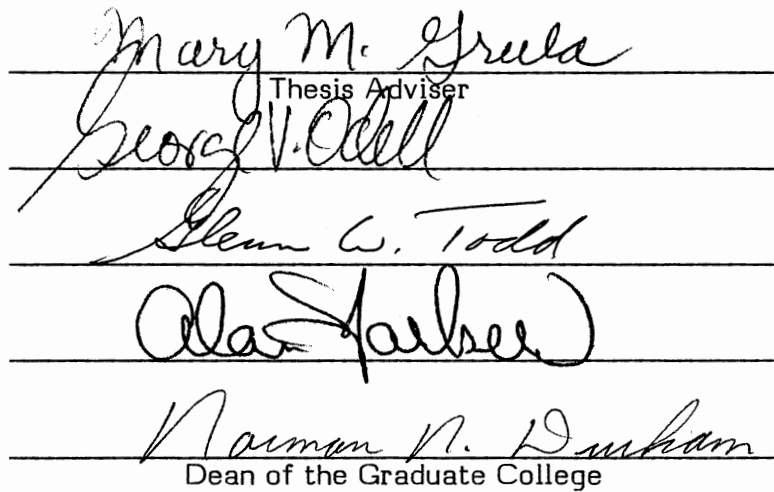 Mary M. Grula
Thesis Adviser
George V. Odell
Glenn W. Todd
Alan
Norman N. Durham
Dean of the Graduate College